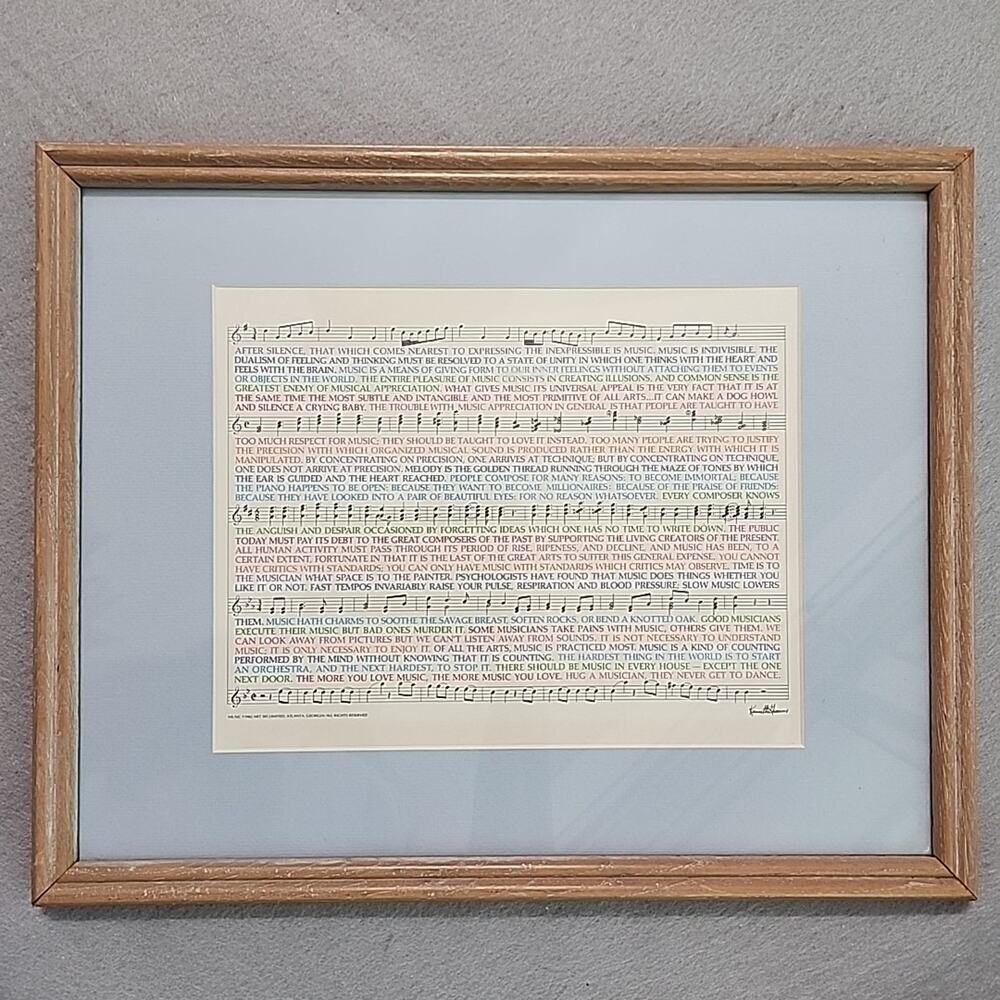 AFTER SILENCE, THAT WHICH COMES NEAREST TO EXPRESSING THE INEXPRESSIBLE IS MUSIC. MUSIC IS INDIVISIBLE. THE
DUALISM OF FEELING AND THINKING MUST BE RESOLVED TO A STATE OF UNITY IN WHICH ONE THINKS WITH THE HEART AND
FEELS WITH THE BRAIN. MUSIC IS A MEANS OF GIVING FORM TO OUR INNER FEELINGS WITHOUT ATTACHING THEM TO EVENTS
OR OBJECTS IN THE WORLD. THE ENTIRE PLEASURE OF MUSIC CONSISTS IN CREATING ILLUSIONS, AND COMMON SENSE IS THE
GREATEST ENEMY OF MUSICAL APPRECIATION. WHAT GIVES MUSIC ITS UNIVERSAL APPEAL IS THE VERY FACT THAT IT IS AT
THE SAME TIME THE MOST SUBTLE AND INTANGIBLE AND THE MOST PRIMITIVE OF ALL ARTS...IT CAN MAKE A DOG HOWL
AND SILENCE A CRYING BABY. THE TROUBLE WITH MUSIC APPRECIATION IN GENERAL IS THAT PEOPLE ARE TAUGHT TO HAVE
TOO MUCH RESPECT FOR MUSIC; THEY SHOULD BE TAUGHT TO LOVE IT INSTEAD. TOO MANY PEOPLE ARE TRYING TO JUSTIFY
THE PRECISION WITH WHICH ORGANIZED MUSICAL SOUND IS PRODUCED RATHER THAN THE ENERGY WITH WHICH IT IS
MANIPULATED. BY CONCENTRATING ON PRECISION, ONE ARRIVES AT TECHNIQUE; BUT BY CONCENTRATING ON TECHNIQUE,
ONE DOES NOT ARRIVE AT PRECISION. MELODY IS THE GOLDEN THREAD RUNNING THROUGH THE MAZE OF TONES BY WHICH
THE EAR IS GUIDED AND THE HEART REACHED. PEOPLE COMPOSE FOR MANY REASONS: TO BECOME IMMORTAL; BECAUSE
THE PIANO HAPPENS TO BE OPEN; BECAUSE THEY WANT TO BECOME MILLIONAIRES; BECAUSE OF THE PRAISE OF FRIENDS;
BECAUSE THEY HAVE LOOKED INTO A PAIR OF BEAUTIFUL EYES; FOR NO REASON WHATSOEVER. EVERY COMPOSER KNOWS
THE ANGUISH AND DESPAIR OCCASIONED BY FORGETTING IDEAS WHICH ONE HAS NO TIME TO WRITE DOWN. THE PUBLIC
TODAY MUST PAY ITS DEBT TO THE GREAT COMPOSERS OF THE PAST BY SUPPORTING THE LIVING CREATORS OF THE PRESENT.
ALL HUMAN ACTIVITY MUST PASS THROUGH ITS PERIOD OF RISE, RIPENESS, AND DECLINE, AND MUSIC HAS BEEN, TO A
CERTAIN EXTENT, FORTUNATE IN THAT IT IS THE LAST OF THE GREAT ARTS TO SUFFER THIS GENERAL EXPENSE. YOU CANNOT
HAVE CRITICS WITH STANDARDS; YOU CAN ONLY HAVE MUSIC WITH STANDARDS WHICH CRITICS MAY OBSERVE. TIME IS TO
THE MUSICIAN WHAT SPACE IS TO THE PAINTER. PSYCHOLOGISTS HAVE FOUND THAT MUSIC DOES THINGS WHETHER YOU
LIKE IT OR NOT. FAST TEMPOS INVARIABLY RAISE YOUR PULSE, RESPIRATION AND BLOOD PRESSURE; SLOW MUSIC LOWERS
THEM. MUSIC HATH CHARMS TO SOOTHE THE SAVAGE BREAST, SOFTEN ROCKS, OR BEND A KNOTTED OAK. GOOD MUSICIANS
EXECUTE THEIR MUSIC BUT BAD ONES MURDER IT. SOME MUSICIANS TAKE PAINS WITH MUSIC, OTHERS GIVE THEM. WE
CAN LOOK AWAY FROM PICTURES BUT WE CAN'T LISTEN AWAY FROM SOUNDS. IT IS NOT NECESSARY TO UNDERSTAND
MUSIC; IT IS ONLY NECESSARY TO ENJOY IT. OF ALL THE ARTS, MUSIC IS PRACTICED MOST. MUSIC IS A KIND OF COUNTING
PERFORMED BY THE MIND WITHOUT KNOWING THAT IT IS COUNTING. THE HARDEST THING IN THE WORLD IS TO START
AN ORCHESTRA, AND THE NEXT HARDEST, TO STOP IT. THERE SHOULD BE MUSIC IN EVERY HOUSE — EXCEPT THE ONE
NEXT DOOR. THE MORE YOU LOVE MUSIC, THE MORE MUSIC YOU LOVE. HUG A MUSICIAN, THEY NEVER GET TO DANCE.
ATLANTA, GEORGIA ALL RIGHTS RESERVED